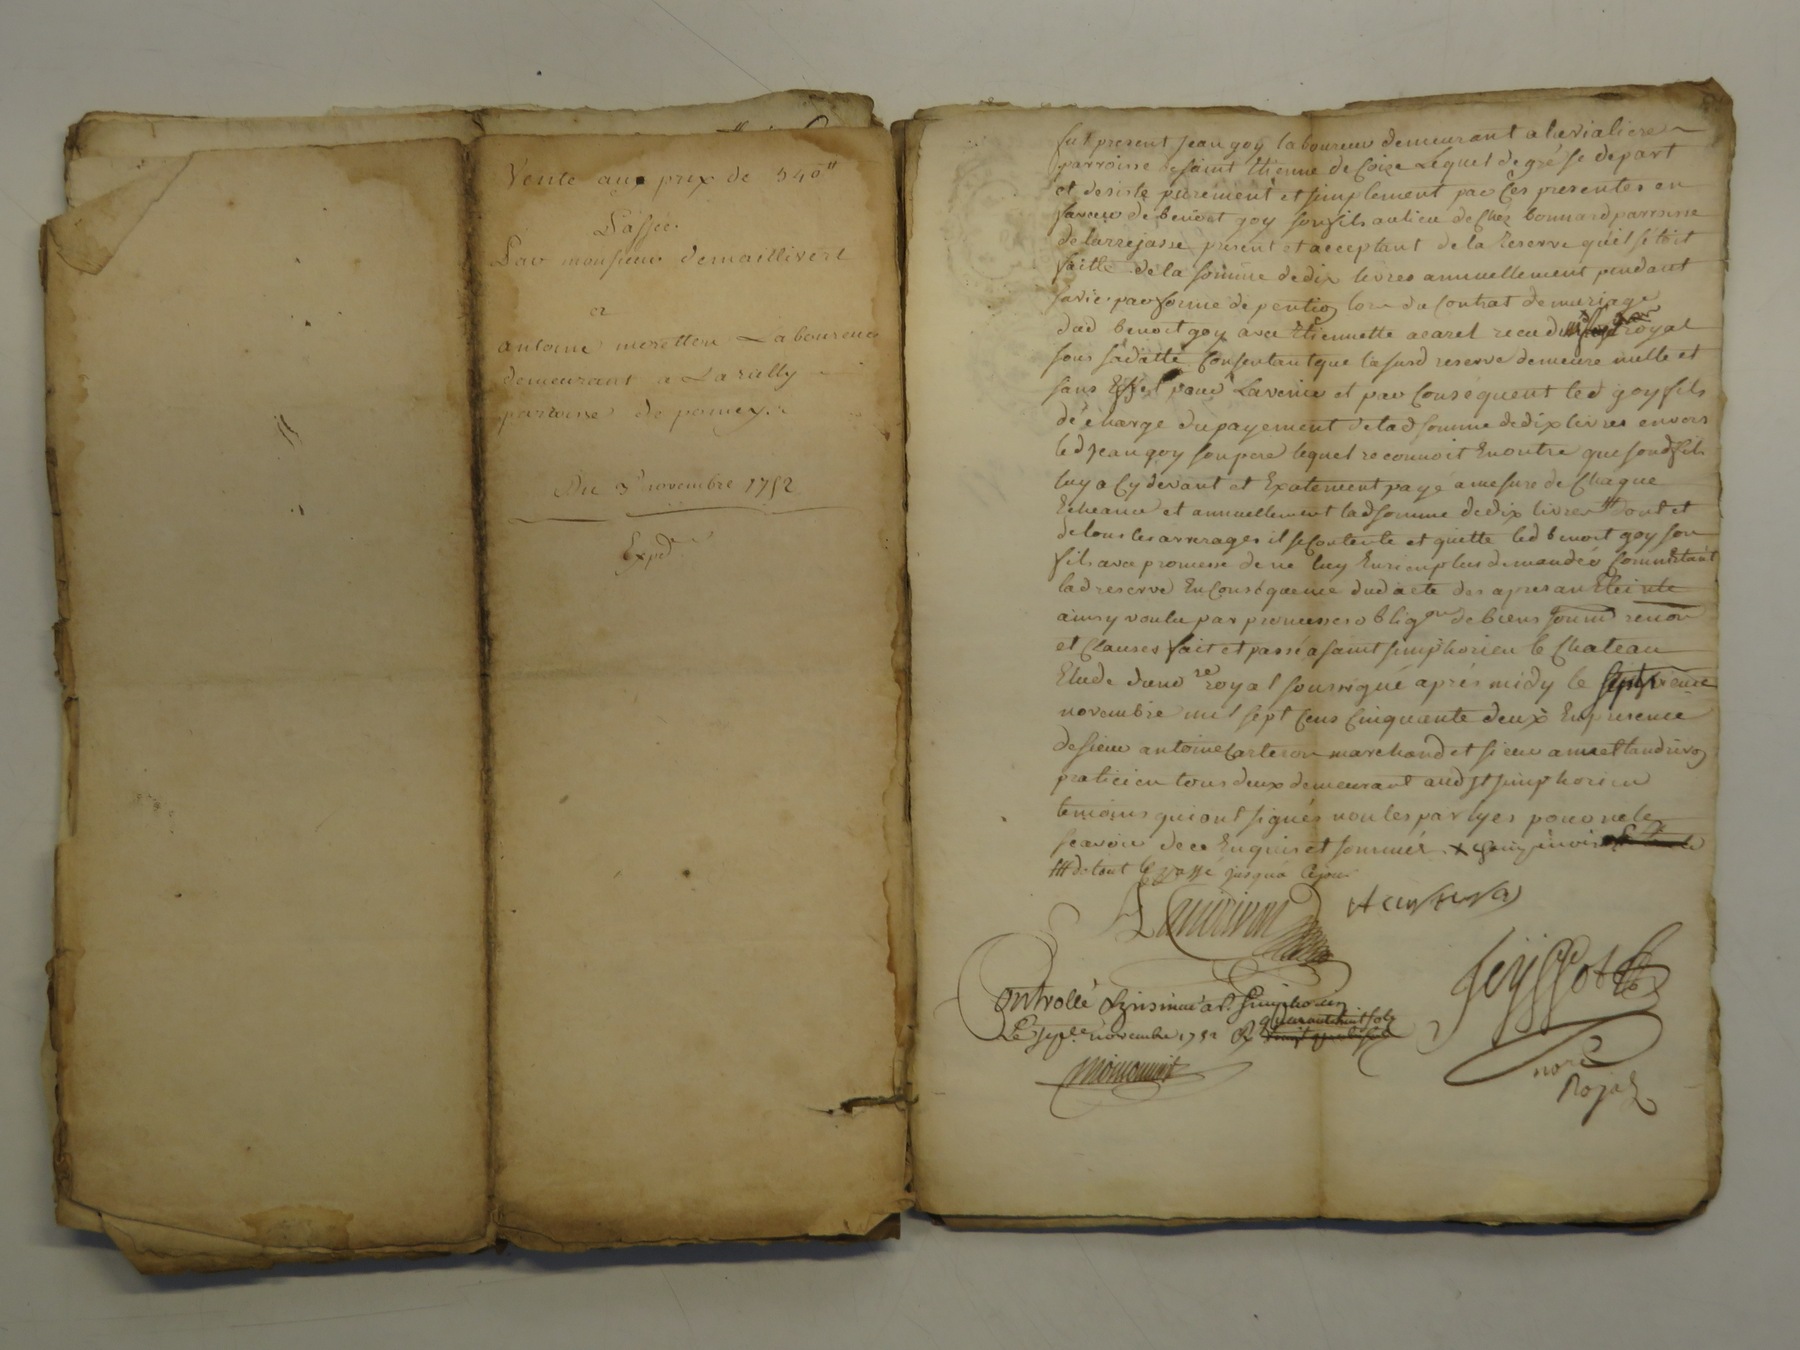 Vente au prix de 540 tt
Passée
Par monsieur demaillivert
a
antoine moretton Laboureur
demeurant a La rully
parroisse de pomey.
Du 3e novembre 1752
Exped
fut present jean goy laboureur demeurant a
parroisse de saint Etienne de Coize Lequel de gré se depart
et desiste purement et simplement par Ces presentes en
faveur de benoit goy son fils au lieu de Chez bonnard parroisse
de larrejasse present et acceptant de la reserve qu'il s'etoit
faitte de la somme de dix livres annuellement pendant
sa vie par forme de pention lors du Contrat de mariage
dud benoit goy avec Etiennette recu royal
sous sa datte Consentant que la susd reserve demeure nulle et
sans Effet pour Lavenir et par Consequent led goy fils
décharge du payement de lad somme de dix livres envers
led jean goy son pere lequel reconnoit En outre que sond fils
luy a Cy devant et Exatement payé a mesure de Chaque
Echeance et annuellement lad somme de dix livres dont et
de tous les arrerages il se Contente et quitte led benoit goy son
fils avec promesse de ne luy En rien plus demander
lad reserve En Conséquence dud acte des apresant Eteinte
ainsy voulu par promesses oblig.on de biens soum renon
et Clauses fait et passé a saint simphorien le Chateau
Etude du no re royal soussigné aprés midy le septieme
novembre mil sept Cens Cinquante deux En presence
de sieur antoine Carteron marchand et sieur amet landrivon
praticien tous deux demeurant aud st simphorien
temoins qui ont signés non les partyes pour ne le
scavoir de ce Enquis et sommés
de tout le passé jusqu'a Ce jour
Landrivon
Controllé & Insinué a st simphorien
Le sept.e novembre 1752 R quarante huit sols
nore
Royal